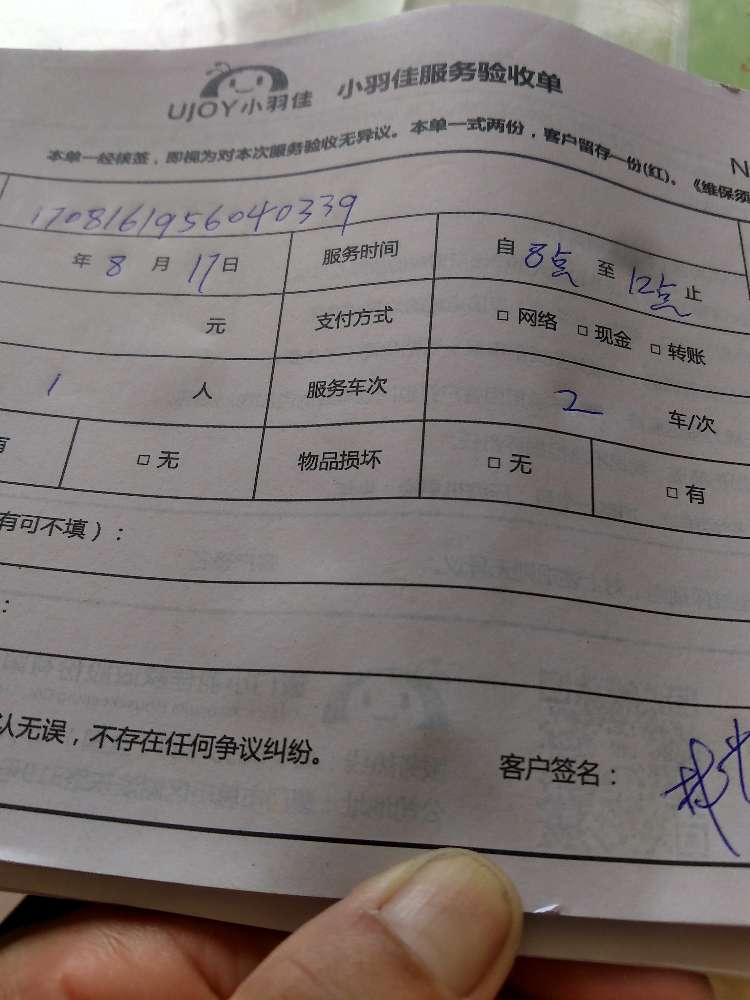 UJOY小羽佳 小羽佳服务验收单
本单一经核签，即视为对本次服务验收无异议。本单一式两份，客户留存一份(红)。《维保须
N
1708161956040339
年 8 月 17 日 服务时间 自 8点 至 12点 止
元 支付方式 □ 网络 □ 现金 □ 转账
1 人 服务车次 2 车/次
有 □ 无 物品损坏 □ 无 □ 有
有可不填）：
：
认无误，不存在任何争议纠纷。 客户签名：